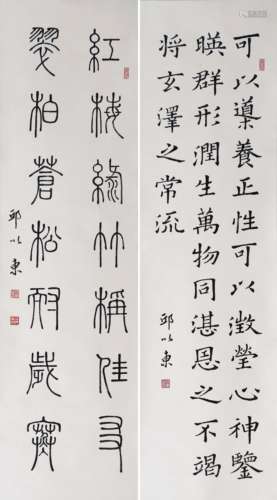 可以導養正性可以澂瑩心神鑒
暎群形潤生萬物同湛恩之不竭
將玄澤之常流
邱以東
紅梅綠竹稱佳友
翠柏蒼松耐歲寒
邱以東